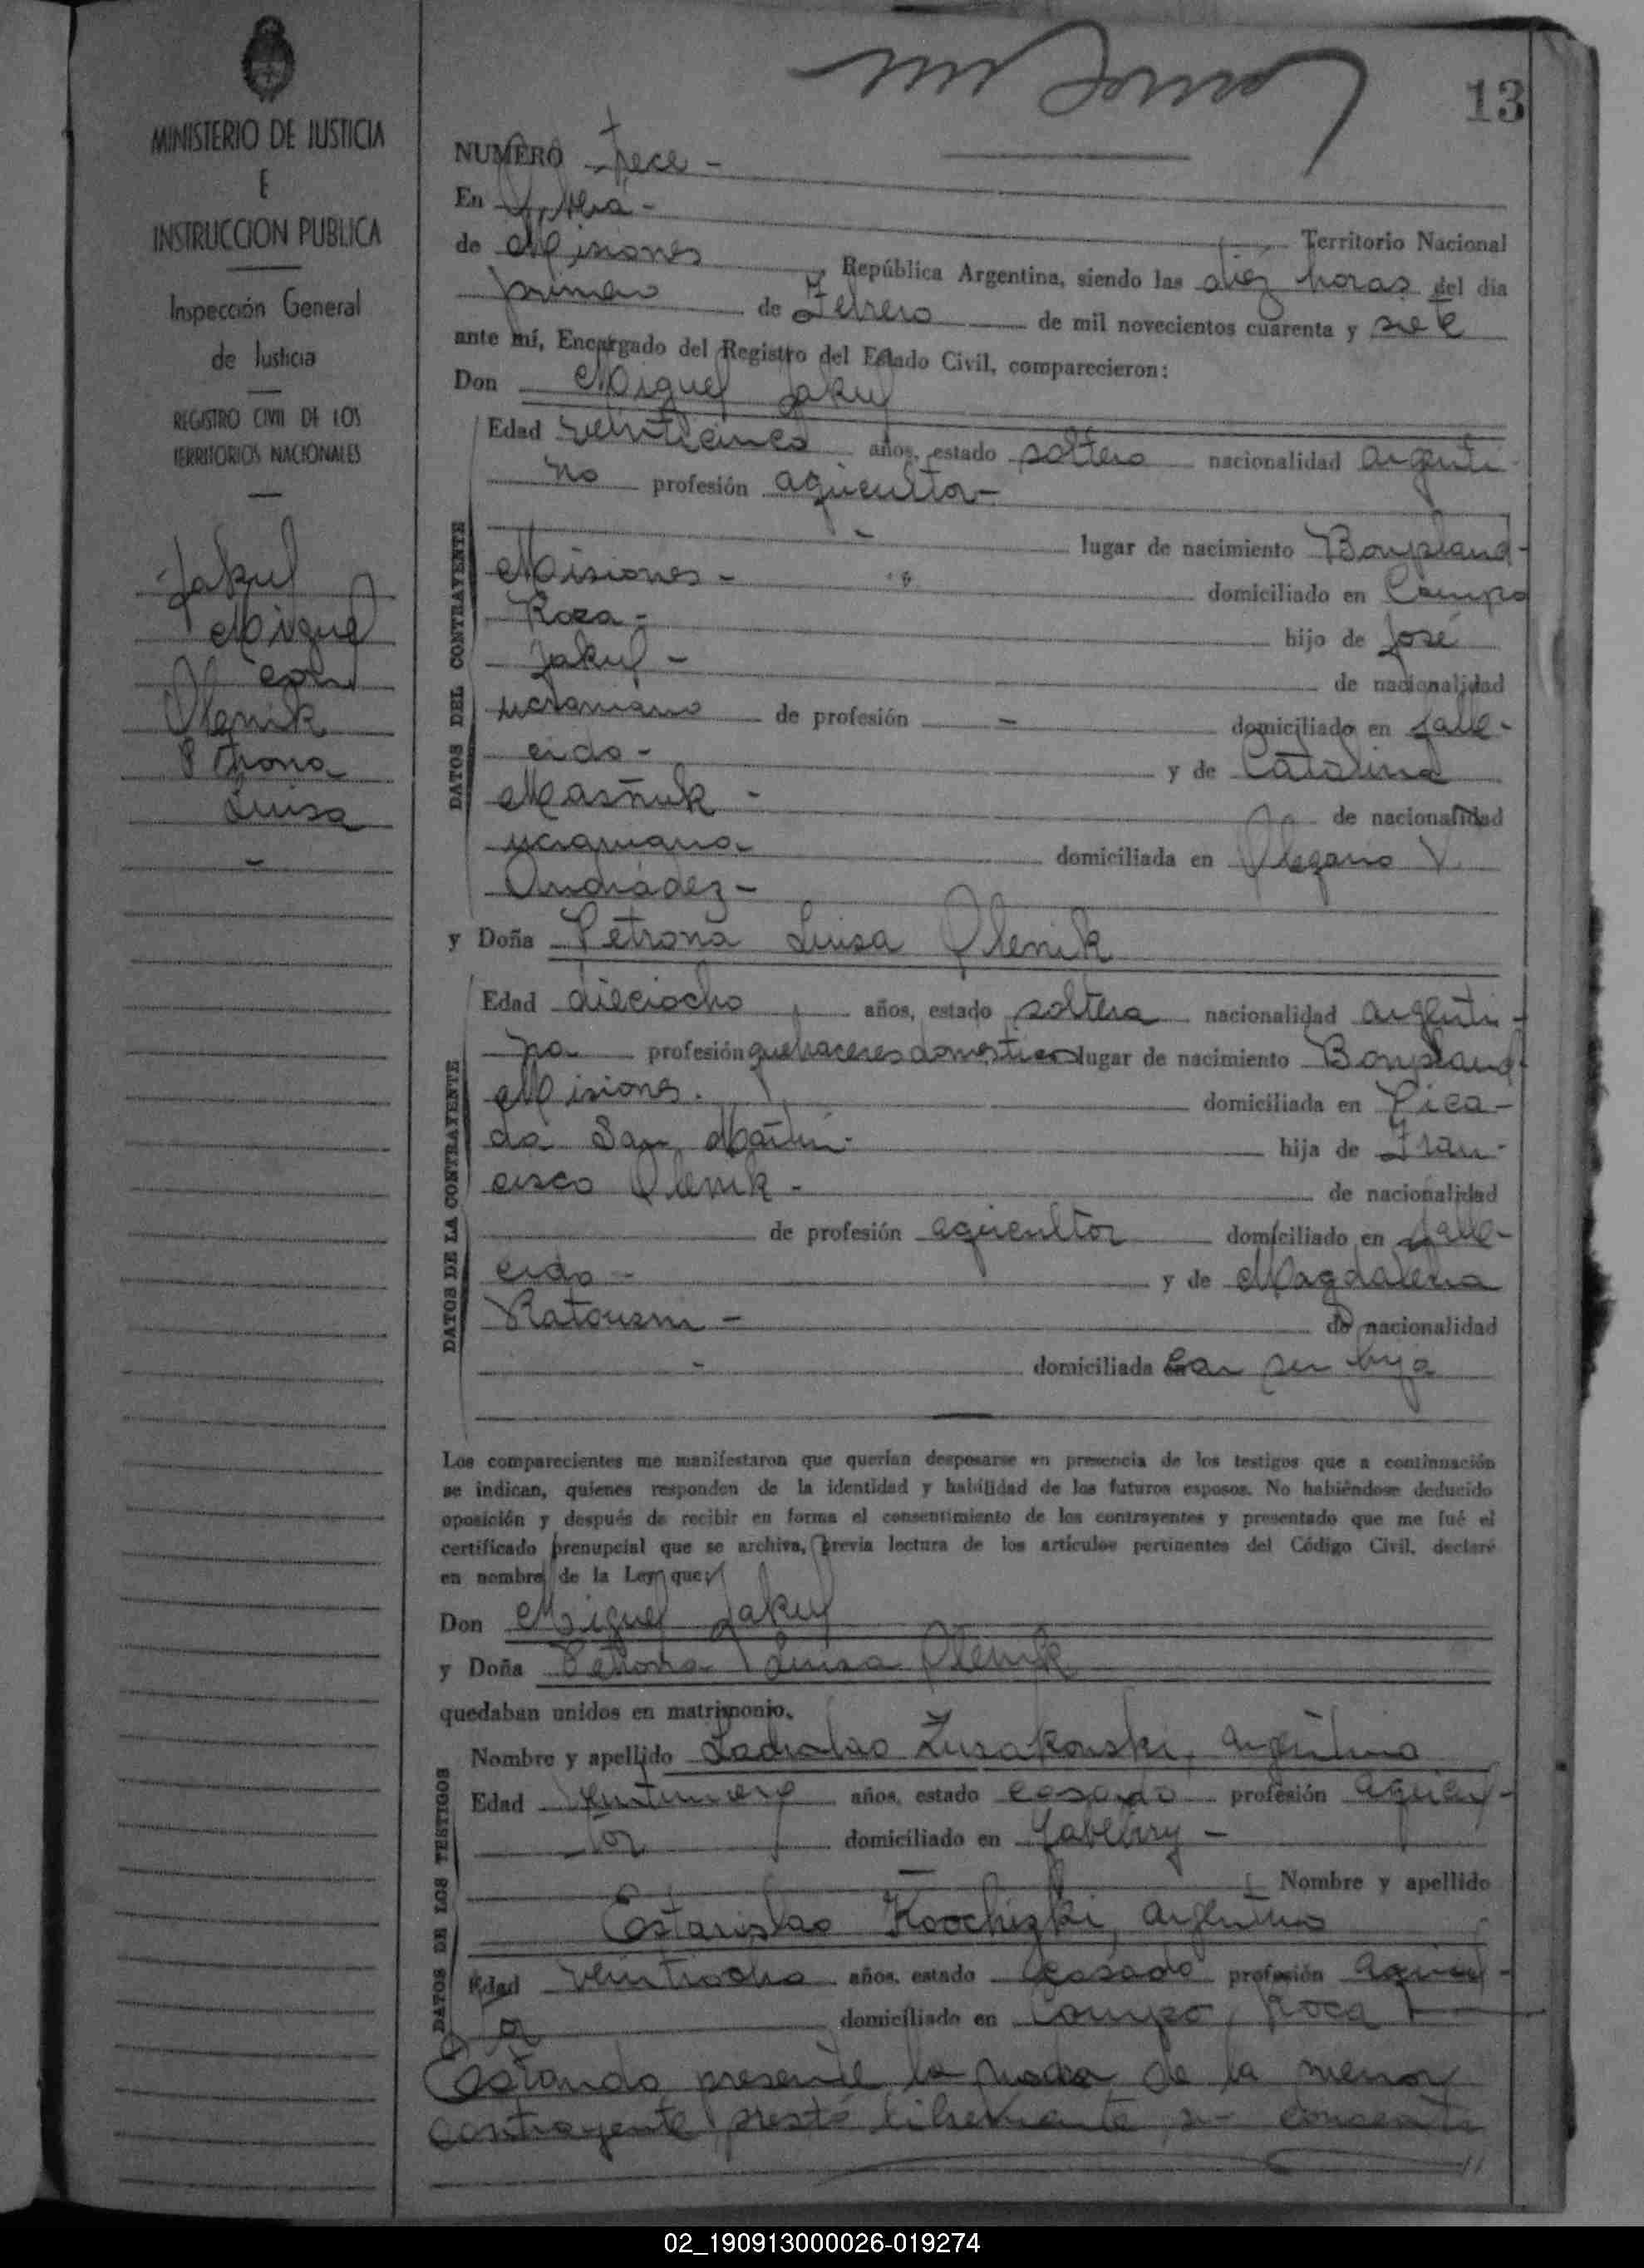 13
MINISTERIO DE JUSTICIA
E
INSTRUCCION PUBLICA
Inspección General
de Justicia
REGISTRO CIVIL DE LOS
TERRITORIOS NACIONALES
Jakul
Miguel
con
Olenik
Petrona
Luisa
NUMERO trece -
En
de Misiones Territorio Nacional
República Argentina, siendo las diez horas del día
primero de Febrero de mil novecientos cuarenta y siete
ante mí, Encargado del Registro del Estado Civil, comparecieron:
Don Miguel Jakul
Edad veinticinco años, estado soltero nacionalidad argenti-
no profesión agricultor-
lugar de nacimiento Bonpland-
Misiones - domiciliado en Campo
Roca - hijo de José
Jakul - de nacionalidad
ucraniano de profesión - domiciliado en falle-
cido - y de Catalina
Masñuk - de nacionalidad
ucraniana domiciliada en Olegario V.
Andrádez -
y Doña Petrona Luisa Olenik
Edad dieciocho años, estado soltera nacionalidad argenti-
na profesión quehaceres domesticos lugar de nacimiento Bonpland-
Misiones. domiciliada en Pica-
da San Martin - hija de Fran-
cisco Olenik - de nacionalidad
de profesión agricultor domiciliado en falle-
cido - y de Magdalena
de nacionalidad
- domiciliada con su hija
DATOS DEL CONTRAYENTE
DATOS DE LA CONTRAYENTE
Los comparecientes me manifestaron que querían desposarse en presencia de los testigos que a continuación
se indican, quienes responden de la identidad y habilidad de los futuros esposos. No habiéndose deducido
oposición y después de recibir en forma el consentimiento de los contrayentes y presentado que me fué el
certificado prenupcial que se archiva, previa lectura de los artículos pertinentes del Código Civil, declaré
en nombre de la Ley que:
Don Miguel Jakul
y Doña Petrona Luisa Olenik
quedaban unidos en matrimonio.
Nombre y apellido Ladislao Zusakouski, argentino
Edad veintinueve años, estado casado profesión agricul-
tor domiciliado en Yabebiry -
Nombre y apellido
Estanislao argentino
Edad veintiocho años, estado casado profesión agricul-
tor domiciliado en Campo Roca
DATOS DE LOS TESTIGOS
Estando presente la madre de la menor
contrayente prestó libremente su consenti
02_190913000026-019274